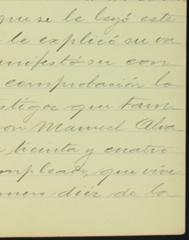 que se le leyó este
le explicó su va
nifestó su con
comprobación la
stigos que tam
on Manuel Alva
treinta y cuatro
mpleado, que vive
mero diez de la